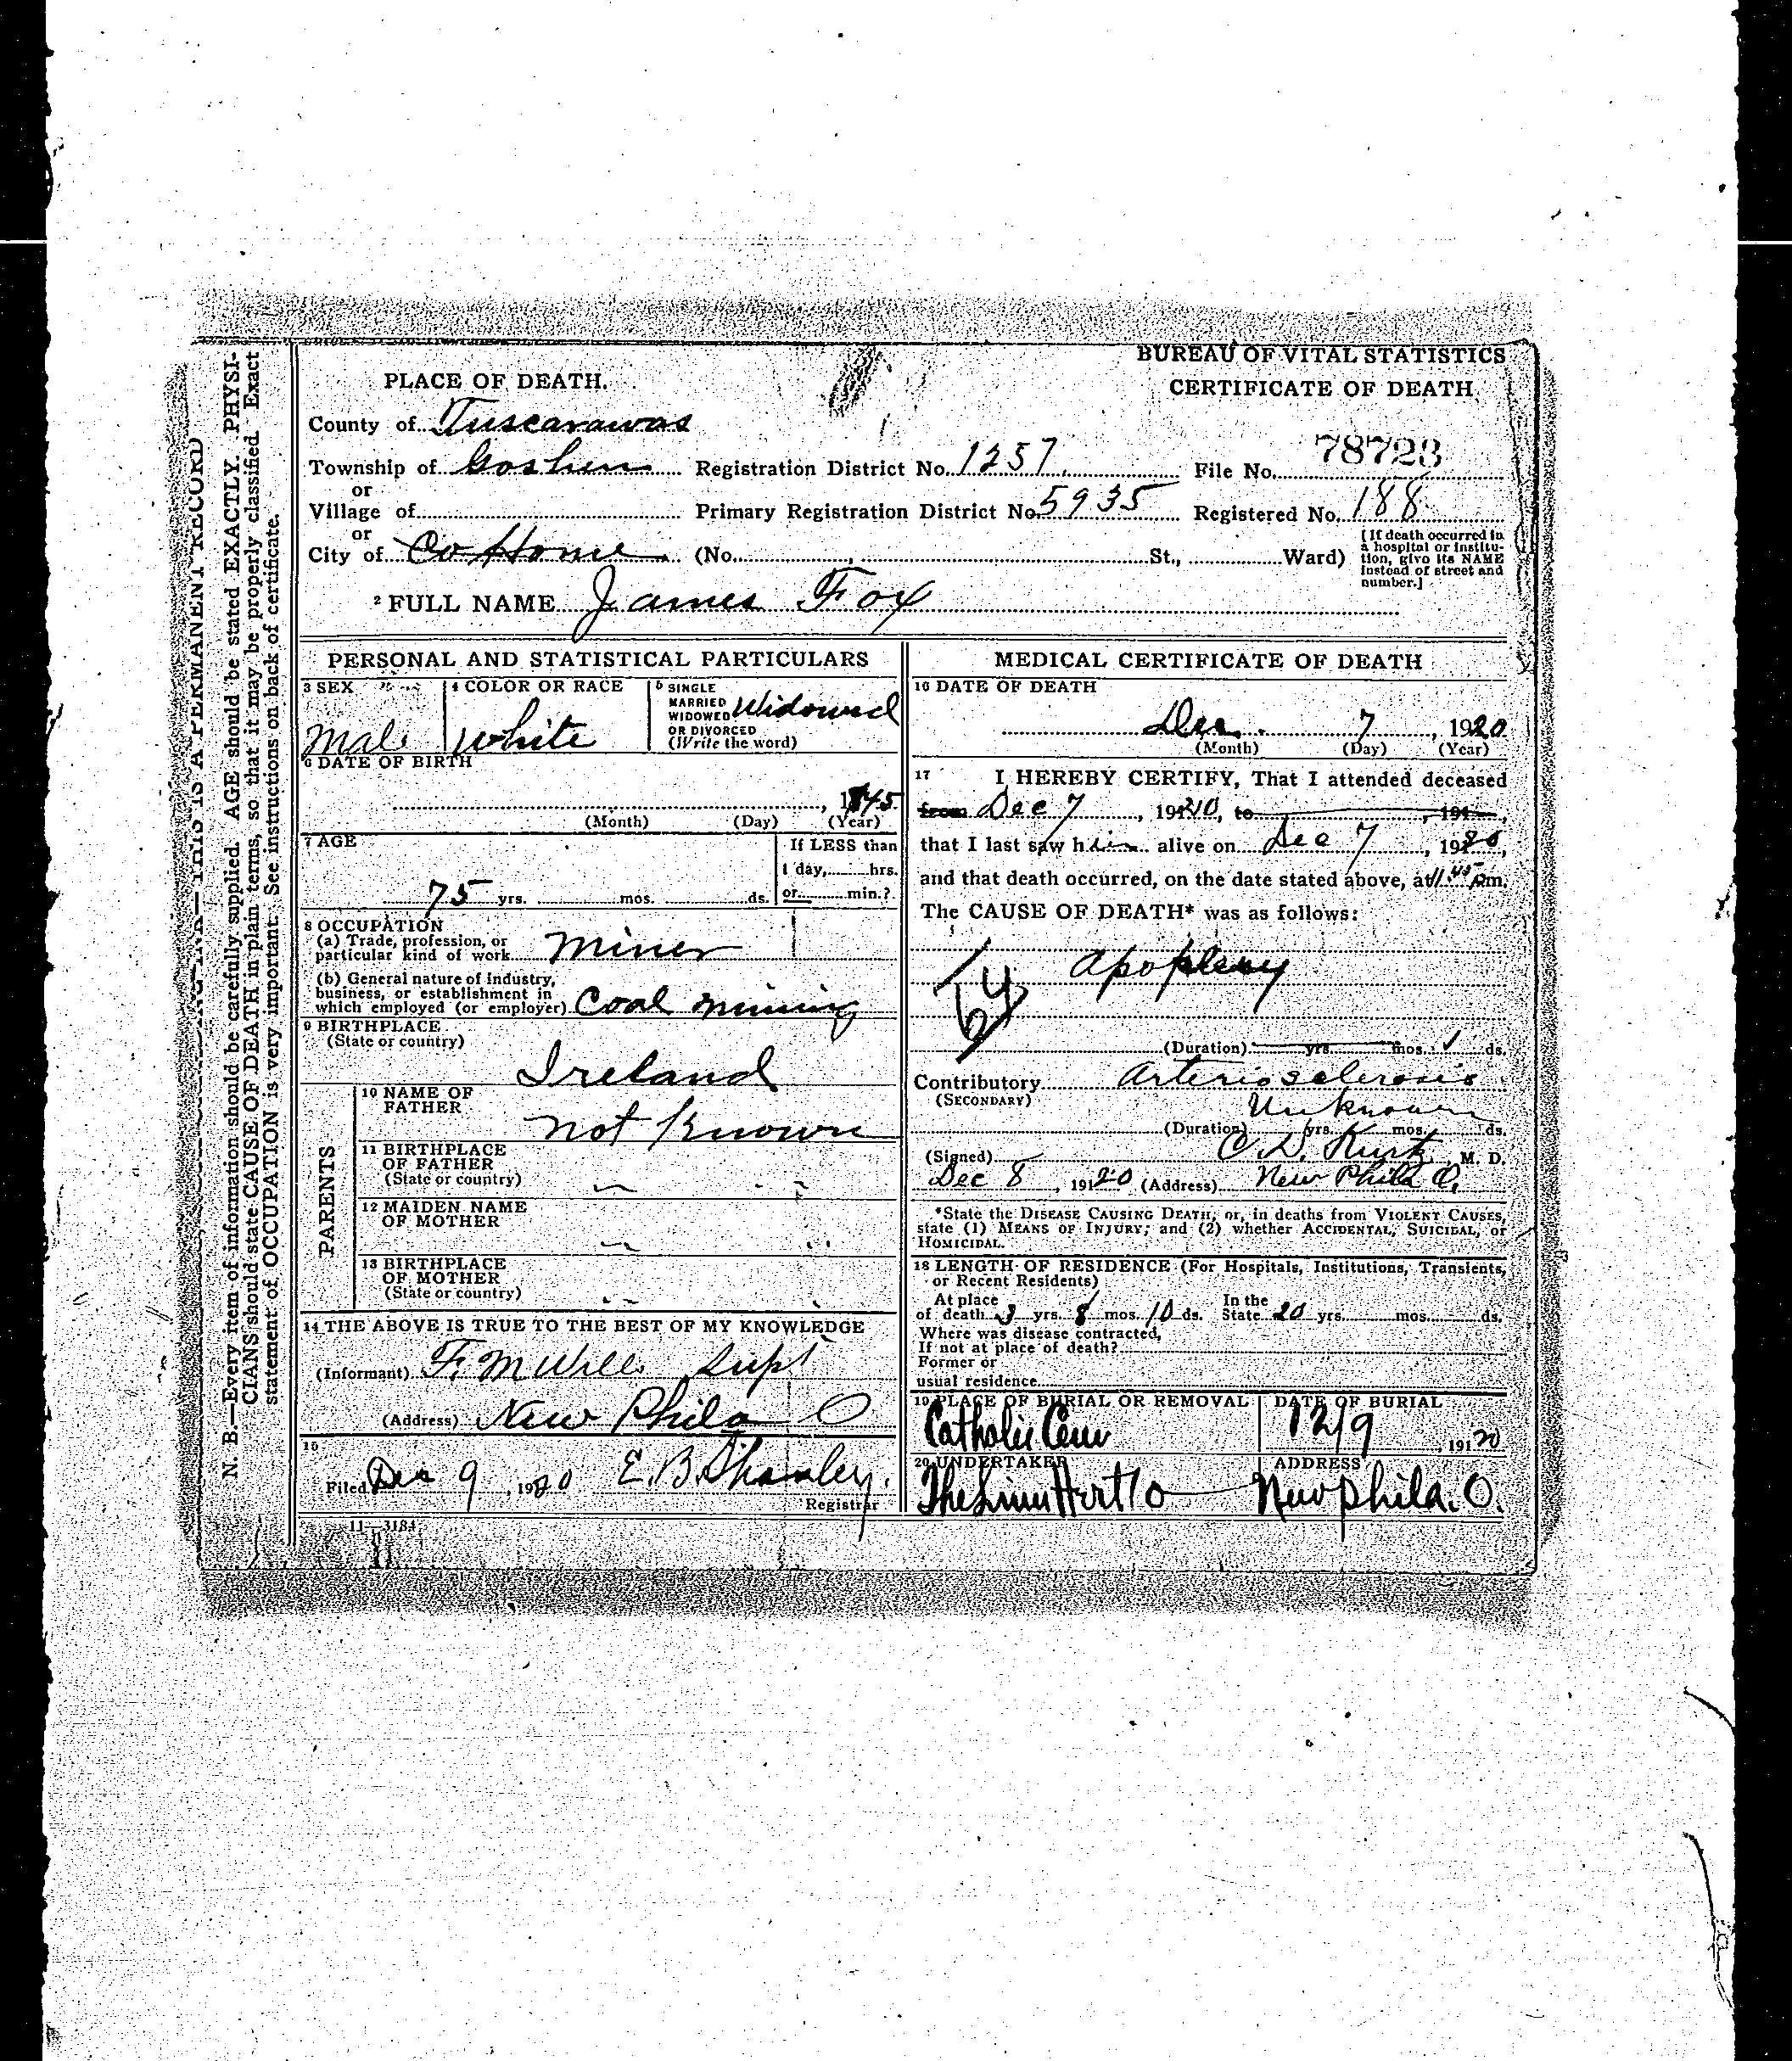 BUREAU OF VITAL STATISTICS
CERTIFICATE OF DEATH
PLACE OF DEATH.
County of Tuscarawas
Township of Goshen Registration District No. 1257 File No. 78723
or
Village of Primary Registration District No. 5935 Registered No. 188
or
City of Co Home (No. , St., Ward)
[If death occurred in
a hospital or institu-
tion, give its NAME
instead of street and
number.]
2 FULL NAME James Fox
PERSONAL AND STATISTICAL PARTICULARS
3 SEX
Male
4 COLOR OR RACE
White
5 SINGLE
MARRIED
WIDOWED
OR DIVORCED
(Write the word)
Widowed
6 DATE OF BIRTH
, 1845
(Month) (Day) (Year)
7 AGE
75 yrs. mos. ds.
If LESS than
1 day, hrs.
or min.?
8 OCCUPATION
(a) Trade, profession, or
particular kind of work Miner
(b) General nature of industry,
business, or establishment in
which employed (or employer) Coal mining
9 BIRTHPLACE
(State or country)
Ireland
PARENTS
10 NAME OF
FATHER
not Known
11 BIRTHPLACE
OF FATHER
(State or country)
12 MAIDEN NAME
OF MOTHER
13 BIRTHPLACE
OF MOTHER
(State or country)
14 THE ABOVE IS TRUE TO THE BEST OF MY KNOWLEDGE
(Informant) F. M Supt
(Address) New Phila O
15
Filed Dec 9, 1920 E. B. Shanley.
Registrar
11—3184
MEDICAL CERTIFICATE OF DEATH
16 DATE OF DEATH
Dec. 7, 1920
(Month) (Day) (Year)
17 I HEREBY CERTIFY, That I attended deceased
from Dec 7, 1920, to , 191 ,
that I last saw him alive on Dec 7, 1920,
and that death occurred, on the date stated above, at 11:45 m.
The CAUSE OF DEATH* was as follows:
Apoplexy
64
(Duration) yrs. mos. 1 ds.
Contributory Arteriosclerosis
(SECONDARY)
Unknown
(Duration) yrs. mos. ds.
(Signed) C. D. Kurtz, M. D.
Dec 8, 1920 (Address) New Phila O.
*State the DISEASE CAUSING DEATH, or, in deaths from VIOLENT CAUSES,
state (1) MEANS OF INJURY; and (2) whether ACCIDENTAL, SUICIDAL, or
HOMICIDAL.
18 LENGTH OF RESIDENCE (For Hospitals, Institutions, Transients,
or Recent Residents)
At place In the
of death 3 yrs. 8 mos. 10 ds. State 20 yrs. mos. ds.
Where was disease contracted,
If not at place of death?
Former or
usual residence
19 PLACE OF BURIAL OR REMOVAL
Catholic Cem
DATE OF BURIAL
12/9, 1920
20 UNDERTAKER
ADDRESS
New Phila. O.
THIS IS A PERMANENT RECORD
N. B.—Every item of information should be carefully supplied. AGE should be stated EXACTLY. PHYSI-
CIANS should state CAUSE OF DEATH in plain terms, so that it may be properly classified. Exact
statement of OCCUPATION is very important. See instructions on back of certificate.